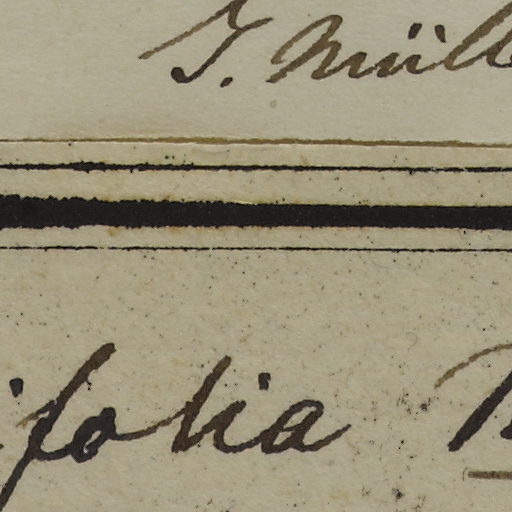 J. Müll
ifolia